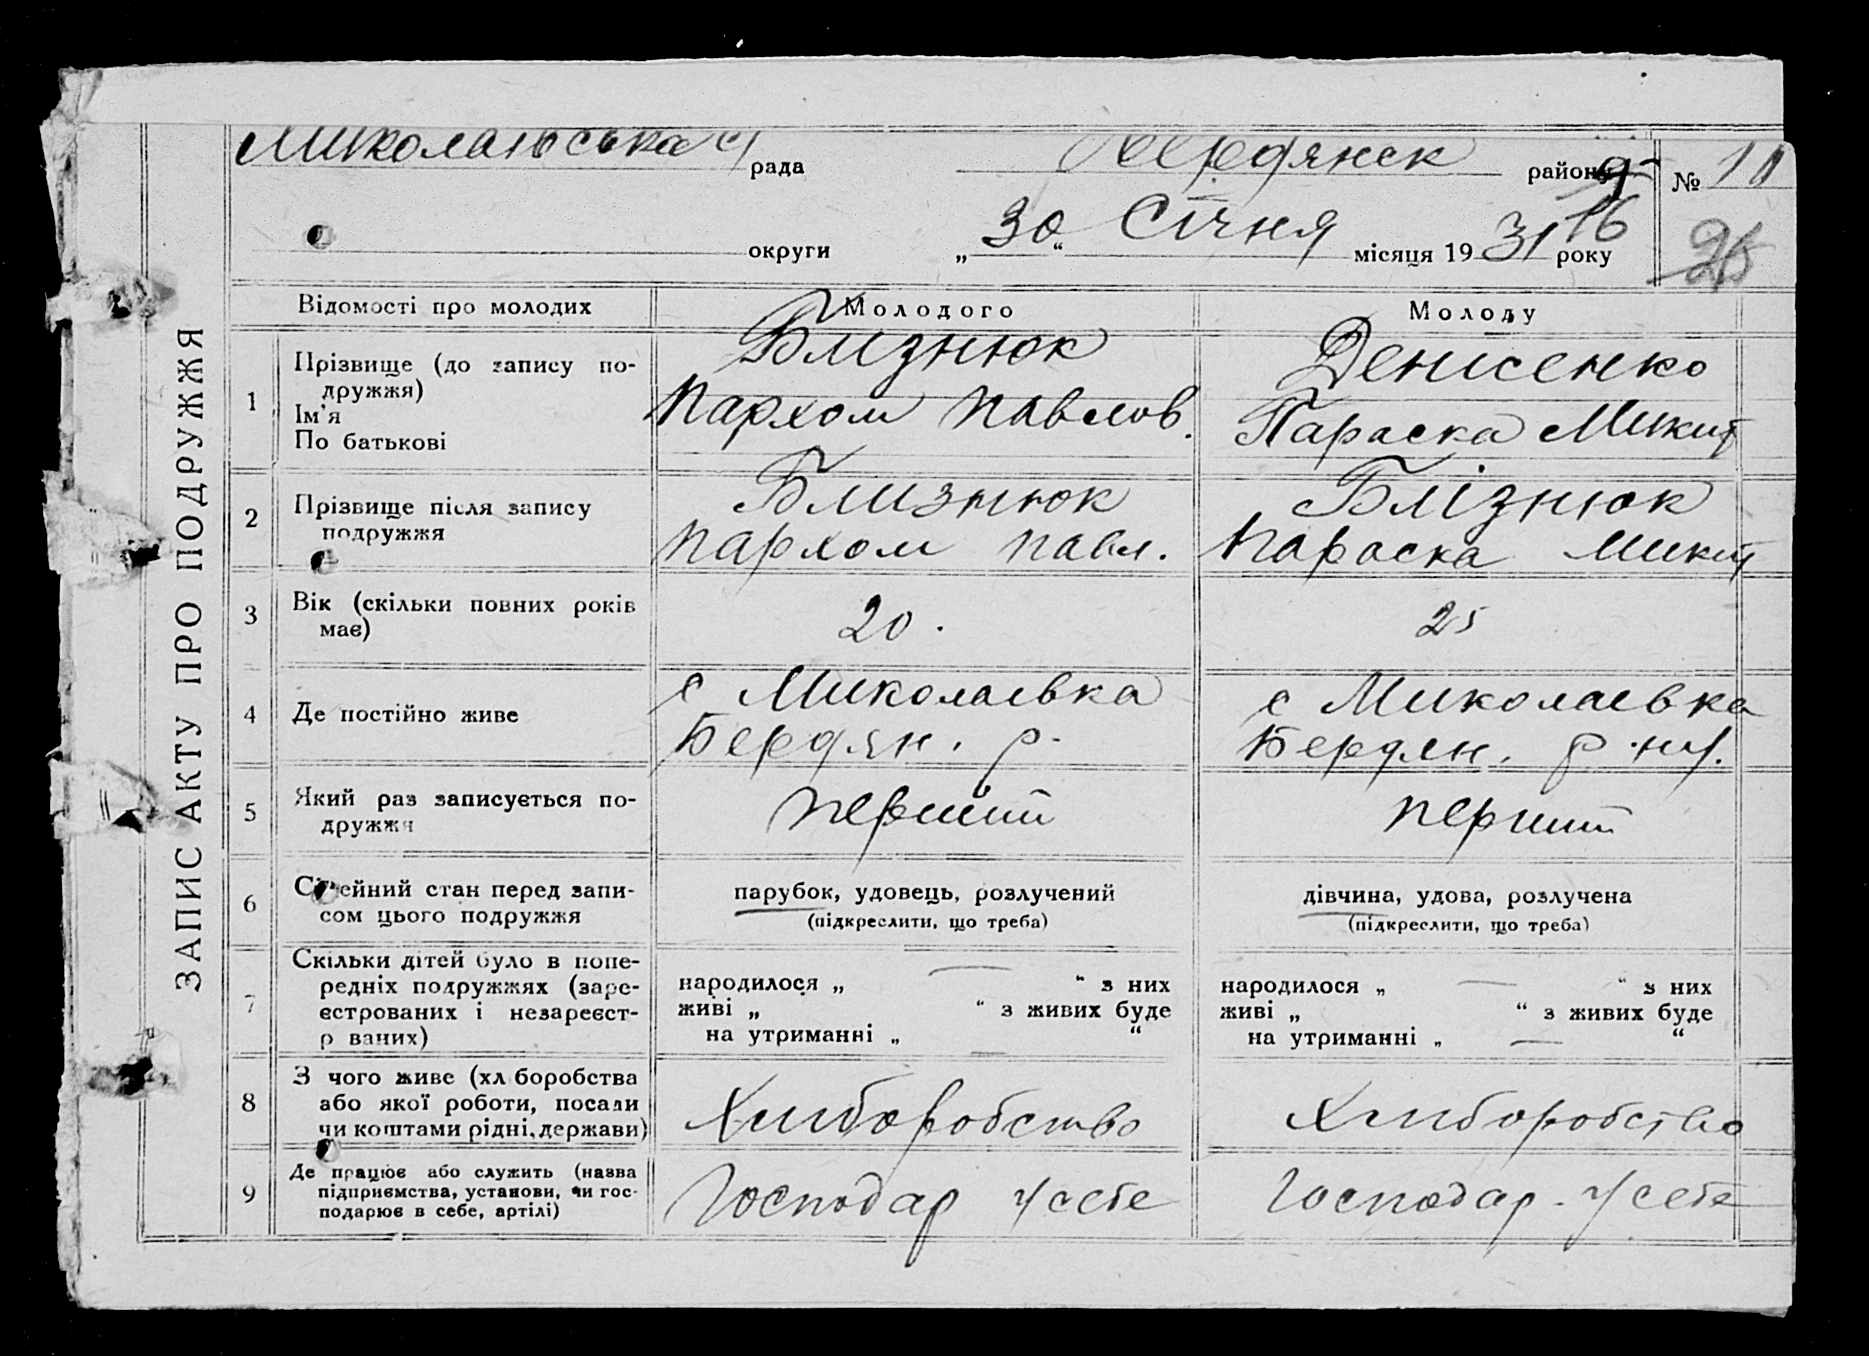 ЗАПИС АКТУ ПРО ПОДРУЖЖЯ
Миколаївська рада Бердянск району № 10
округи „30“ Січня місяця 1931 року
16
25
Відомості про молодих Молодого Молоду
1 Прізвище (до запису по-
дружжя)
Ім'я
По батькові
Близнюк
Пархом Павлов.
Денисенко
Параска Микит
2 Прізвище після запису
подружжя
Близнюк
Пархом Павл.
Блізнюк
Параска Микит
3 Вік (скільки повних років
має)
20.
25
4 Де постійно живе
с Миколаевка
Бердян. р.
с Миколаевка
Бердян. р.
5 Який раз записується по-
дружжя
перший
перший
6 Сімейний стан перед запи-
сом цього подружжя
парубок, удовець, розлучений
(підкреслити, що треба)
дівчина, удова, розлучена
(підкреслити, що треба)
7 Скільки дітей було в попе-
редніх подружжях (заре-
єстрованих і незареєст-
р ваних)
народилося „ — “ з них
живі „ “ з живих буде
на утриманні „ — “
народилося „ — “ з них
живі „ “ з живих буде
на утриманні „ — “
8 З чого живе (хл боробства
або якої роботи, посади
чи коштами рідні, держави)
Хлиборобство
Хлиборобство
9 Де працює або служить (назва
підприємства, установи, чи гос-
подарює в себе, артілі)
Господар у себе
Господар. у себе